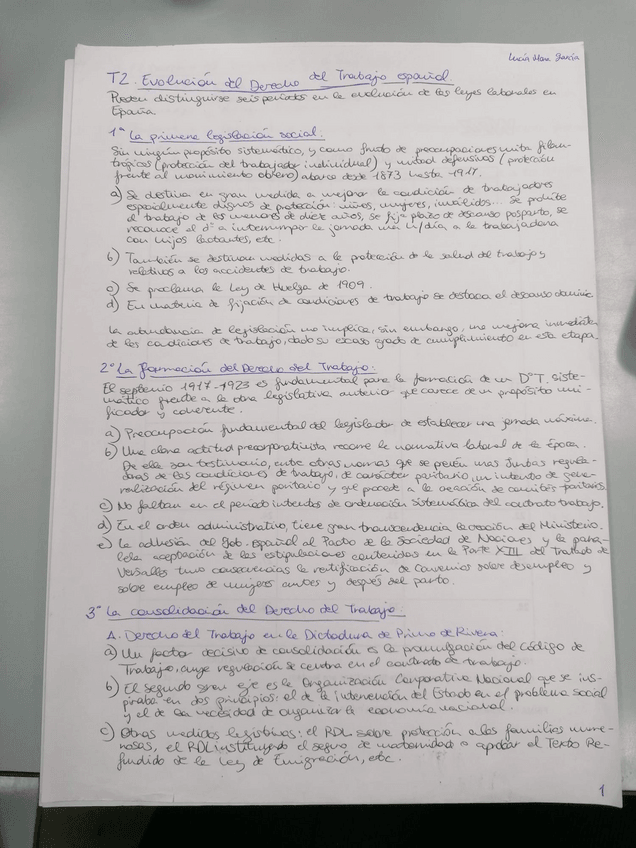 Lucía Mora García
T2. Evolución del Derecho del Trabajo español.
Pueden distinguirse seis períodos en la evolución de las leyes laborales en
España
1º La primera legislación social:
Sin ningún propósito sistemático, y como fruto de preocupaciones mitad filan-
trópicas (protección del trabajador individual) y mitad defensivas (protección
frente al movimiento obrero) abarca desde 1873 hasta 1917.
a) Se destina en gran medida a mejorar la condición de trabajadores
especialmente dignos de protección: niños, mujeres, inválidos... Se prohíbe
el trabajo de los menores de diez años, se fija plazo de descanso posparto, se
reconoce el dº a interrumpir la jornada una h/día, a la trabajadora
con hijos lactantes, etc.
b) También se destinan medidas a la protección de la salud del trabajo y
relativos a los accidentes de trabajo.
c) Se proclama la Ley de Huelga de 1909.
d) En materia de fijación de condiciones de trabajo se destaca el descanso dominic.
La abundancia de legislación no implica, sin embargo, una mejora inmediata
de las condiciones de trabajo, dado su escaso grado de cumplimiento en esta etapa
2º La formación del Derecho del Trabajo:
El septenio 1917-1923 es fundamental para la formación de un DºT. siste-
mático frente a la obra legislativa anterior que carece de un propósito uni-
ficador y coherente.
a) Preocupación fundamental del legislador de establecer una jornada máxima.
b) Una clara actitud precorporativista recorre la normativa laboral de la época.
De ella son testimonio, entre otras normas que se prevén unas Juntas regula-
doras de las condiciones de trabajo, de carácter paritario, un intento de gene-
ralización del régimen paritario y que procede a la creación de comités paritarios.
c) No faltan en el período intentos de ordenación sistemática del contrato trabajo.
d) En el orden administrativo, tiene gran trascendencia la creación del Ministerio.
e) La adhesión del Gob. español al Pacto de la Sociedad de Naciones y la para-
lela aceptación de las estipulaciones contenidas en la Parte XIII del Tratado de
Versalles tuvo consecuencias la ratificación de Convenios sobre desempleo y
sobre empleo de mujeres antes y después del parto.
3º La consolidación del Derecho del Trabajo:
A. Derecho del Trabajo en la Dictadura de Primo de Rivera:
a) Un factor decisivo de consolidación es la promulgación del Código de
Trabajo, cuya regulación se centra en el contrato de trabajo.
b) El segundo gran eje es la Organización Corporativa Nacional que se ins-
piraba en dos principios: el de la intervención del Estado en el problema social
y el de la necesidad de organizar la economía nacional.
c) Otras medidas legislativas: el RDL sobre protección a las familias nume-
rosas, el RDL instituyendo el seguro de maternidad aprobar el Texto Re-
fundido de la Ley de Emigración, etc.
1